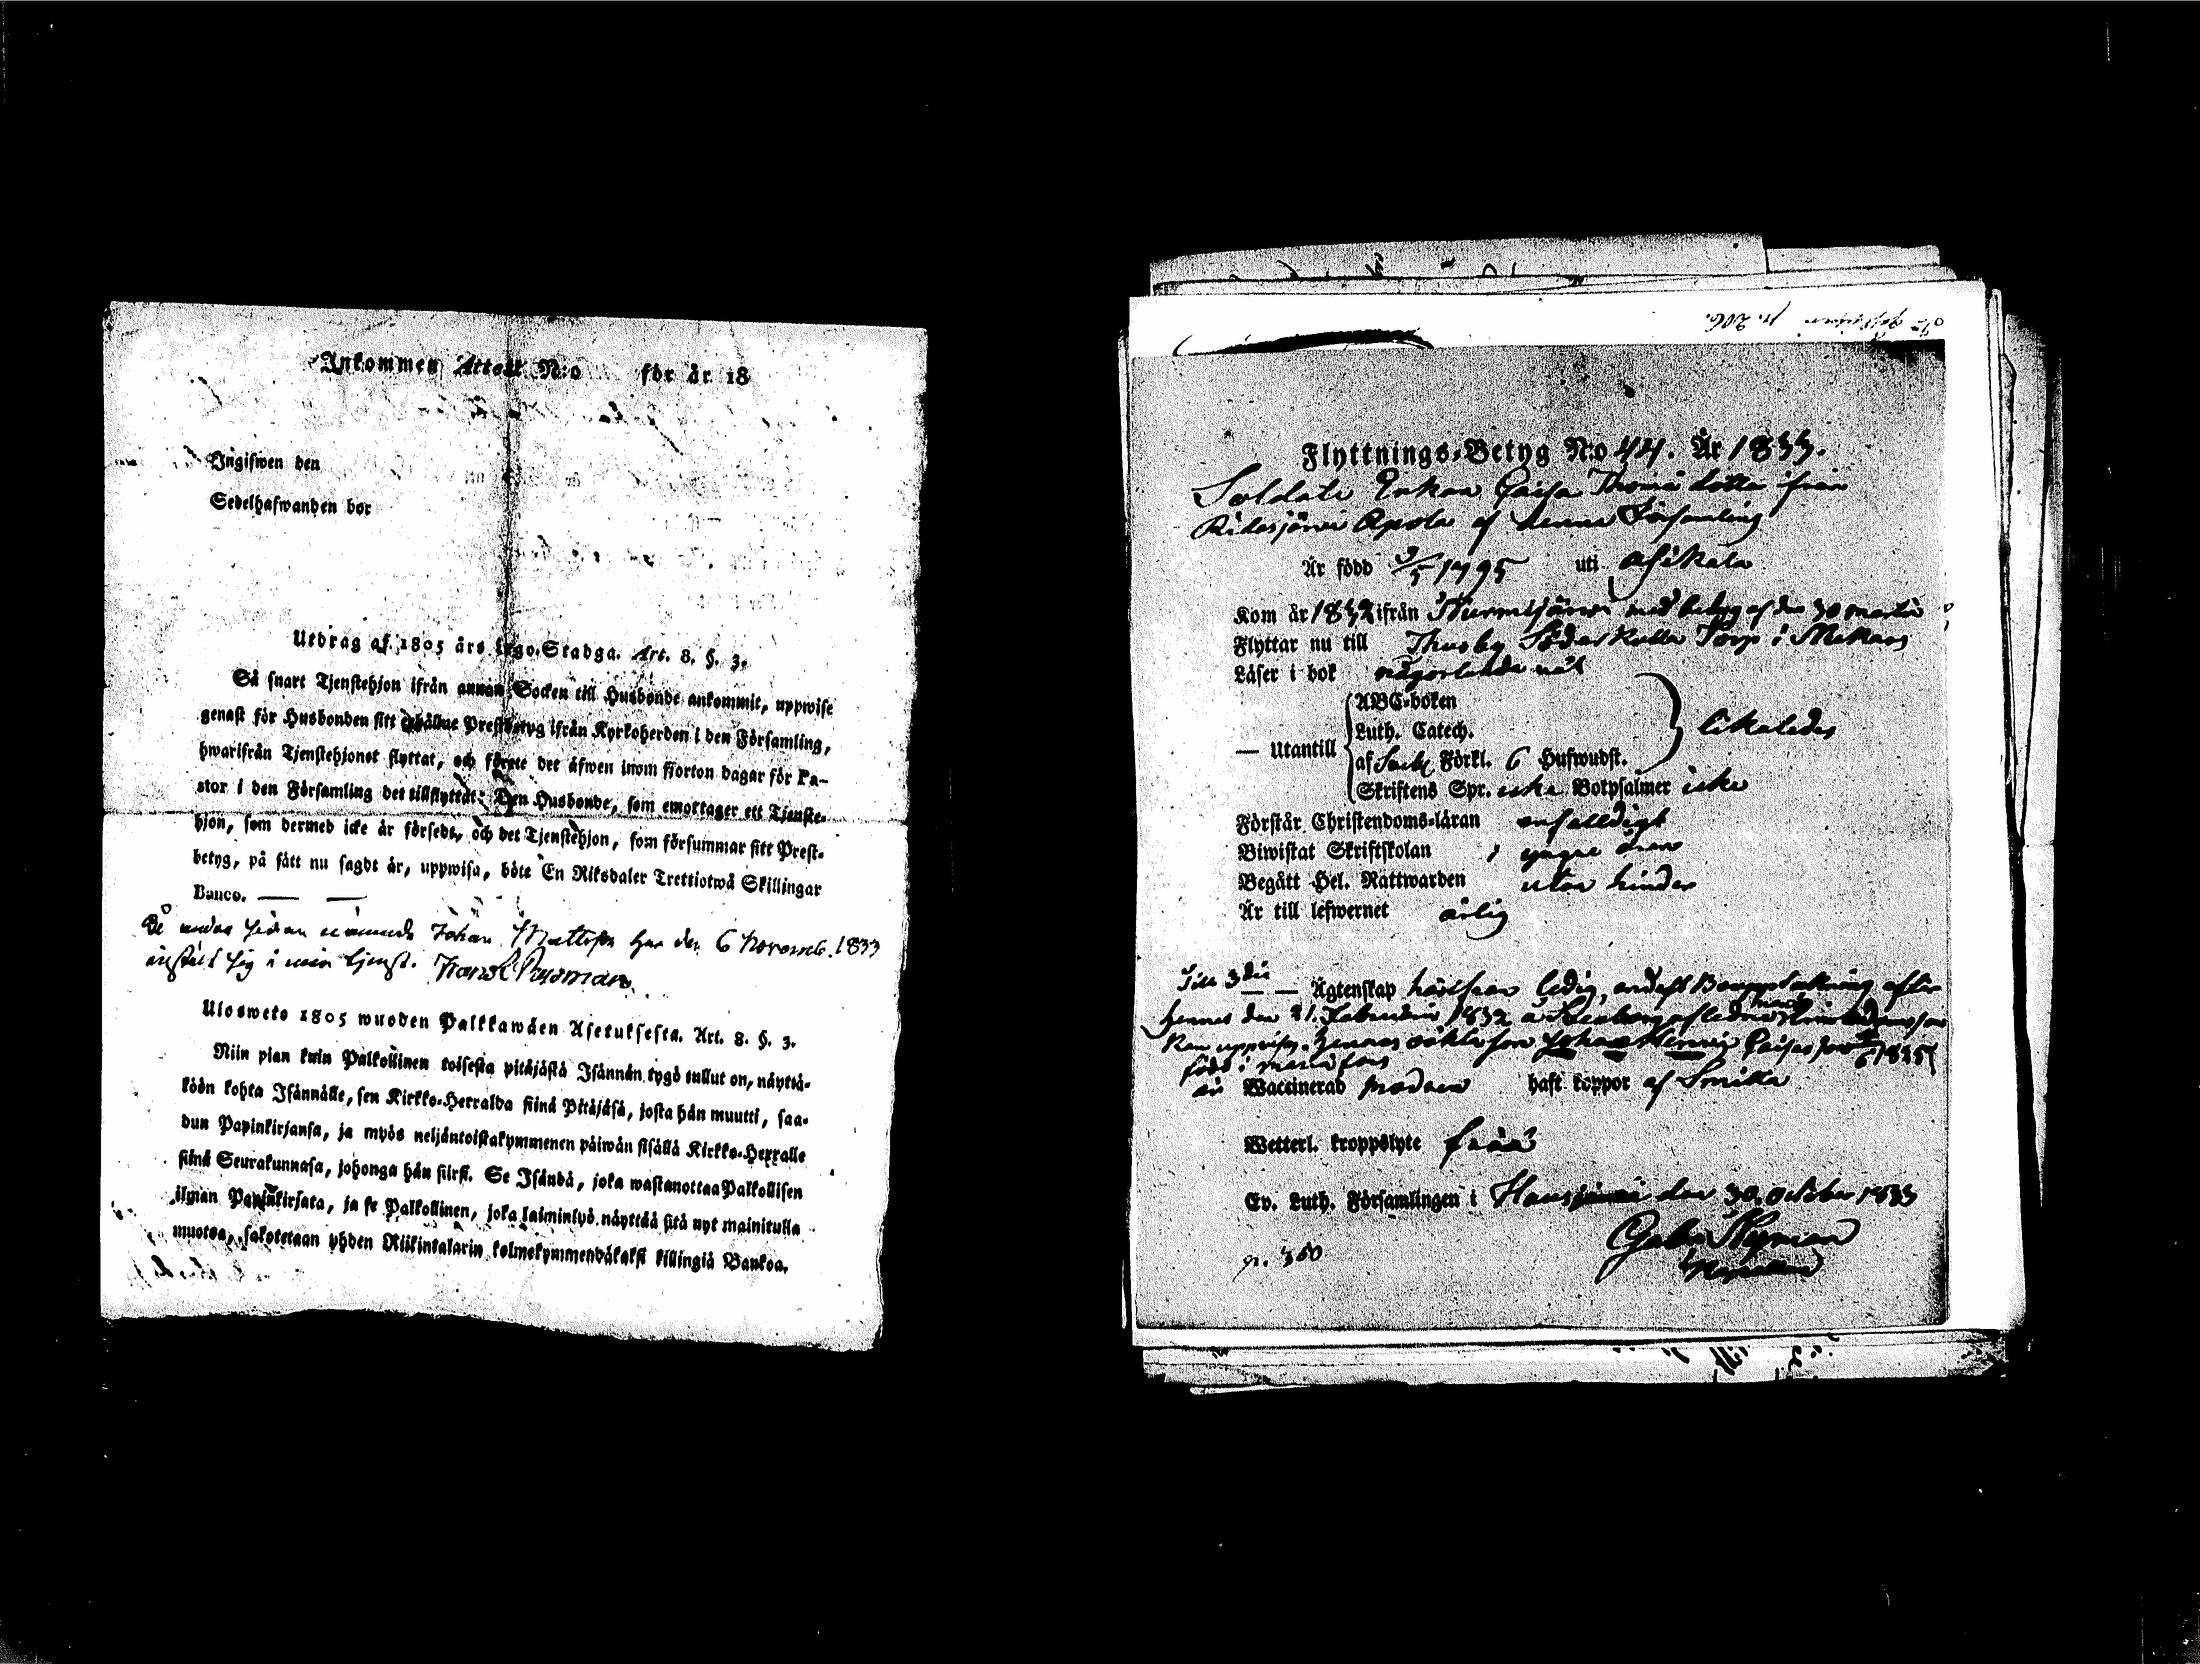 Ankommen Attest N:o för år 18
Ingifwen den
Sedelhafwanden bor
Utdrag af 1805 års Lego-Stadga. Art. 8. §. 3.
Så snart Tjenstehjon ifrån annan Socken till Husbonde ankommit, uppwise
genast för Husbonden sitt erhållne Prestbetyg ifrån Kyrkoherden i den Församling,
hwarifrån Tjenstehjonet flyttat, och förete det äfwen inom fjorton dagar för Pa-
stor i den Församling det tillflyttat: Den Husbonde, som emottager ett Tjenste-
hjon, som dermed icke är försedt, och det Tjenstehjon, som försummar sitt Prest-
betyg, på sätt nu sagdt är, uppwisa, böte En Riksdaler Trettiotwå Skillingar
Banco. — —
nämnde Johan Mattsson har den 6 Novemb. 1833
sig i min tjenst.
Ulosweto 1805 wuoden Palkkawäen Asetuksesta. Art. 8. §. 3.
Niin pian kuin Palkollinen toisesta pitäjästä Isännän tygö tullut on, näyttä-
köön kohta Isännälle, sen Kirkko-Herralda siinä Pitäjäsä, josta hän muutti, saa-
dun Papinkirjansa, ja myös neljäntoistakymmenen päiwän sisällä Kirkko-Herralle
siinä Seurakunnasa, johonga hän siirsi. Se Isändä, joka wastanottaa Palkollisen
ilman Papinkirjata, ja se Palkollinen, joka laiminlyö näyttää sitä nyt mainitulla
muotoa, sakotetaan yhden Riikintalarin kolmekymmendäkaksi killingiä Bankoa.
p. 206.
Flyttnings-Betyg N:o 44. År 1833.
Soldats Enkan Caisa Thomædotter ifrån
af denna Församling
Är född 3/5 1795 uti Asikala
Kom år 1832 ifrån med betyg af den 30 martii
Flyttar nu till Thusby Söderkulla Torp i
Läser i bok någorlunda nöt
— Utantill ABC-boken
Luth. Catech. likaledes
af Förkl. 6 Hufwudst.
Skriftens Spr. icke Botpsalmer icke
Förstår Christendoms-läran enfalldigt
Biwistat Skriftskolan i yngre åren
Begått Hel. Nattwarden utan hinder
Är till lefwernet ärlig
Till 3die — — Ägtenskap härifrån ledig, efter
hennes den 21. Februarii 1832 å
kan uppwisa. Hennes oäkta son Johan
född i
är Waccinerad modren haft koppor af Smitta
Wetterl. kroppslyte
Ev. Luth. Församlingen i Hausjärvi den 30. October 1833
p. 360